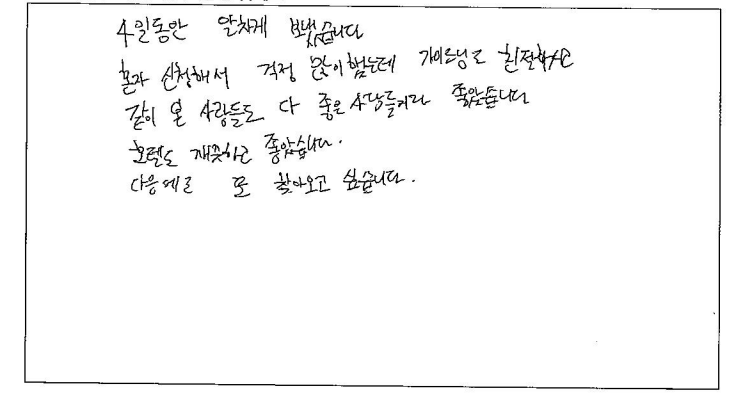 4일동안 알차게 보냈습니다
혼자 신청해서 걱정 많이했는데 가이드님도 친절하시고
같이 온 사람들도 다 좋은 사람들이라 좋았습니다
호텔도 깨끗하고 좋았습니다.
다음에도 또 찾아오고 싶습니다.